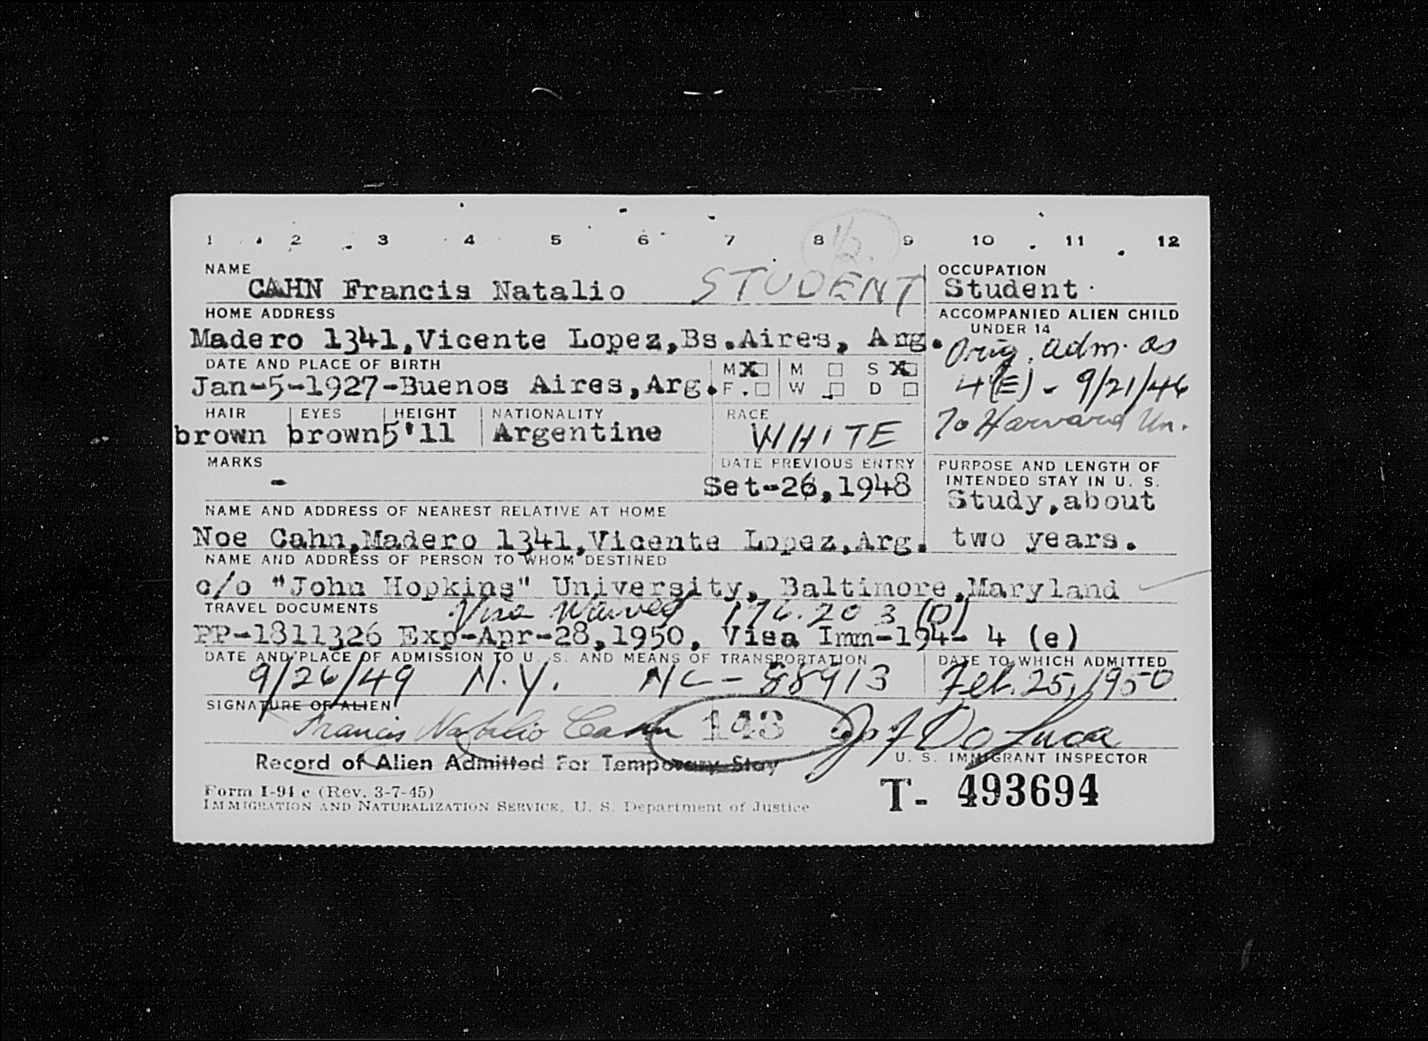 1 2 3 4 5 6 7 8 9 10 11 12
NAME
CAHN Francis Natalio STUDENT
OCCUPATION
Student
HOME ADDRESS
Madero 1341,Vicente Lopez,Bs.Aires, Arg.
ACCOMPANIED ALIEN CHILD
UNDER 14
Orig. adm. as
4(E) - 9/21/46
To Harvard Un.
DATE AND PLACE OF BIRTH
Jan-5-1927-Buenos Aires,Arg.
M X M S X
F. W D
HAIR EYES HEIGHT NATIONALITY RACE
brown brown 5'11 Argentine WHITE
MARKS
-
DATE PREVIOUS ENTRY
Set-26,1948
PURPOSE AND LENGTH OF
INTENDED STAY IN U. S.
Study,about
two years.
NAME AND ADDRESS OF NEAREST RELATIVE AT HOME
Noe Cahn,Madero 1341,Vicente Lopez,Arg.
NAME AND ADDRESS OF PERSON TO WHOM DESTINED
c/o "John Hopkins" University, Baltimore,Maryland
TRAVEL DOCUMENTS
Visa Waived 176.203(D)
PP-1811326 Exp-Apr-28,1950, Visa Imm-194- 4 (e)
DATE AND PLACE OF ADMISSION TO U. S. AND MEANS OF TRANSPORTATION
9/26/49 N.Y. NC-88913
DATE TO WHICH ADMITTED
Feb. 25, 1950
SIGNATURE OF ALIEN
Francis Natalio Cahn
143
Jos J De Luca
U. S. IMMIGRANT INSPECTOR
Record of Alien Admitted For Temporary Stay
Form I-94 c (Rev. 3-7-45)
IMMIGRATION AND NATURALIZATION SERVICE, U. S. Department of Justice
T- 493694